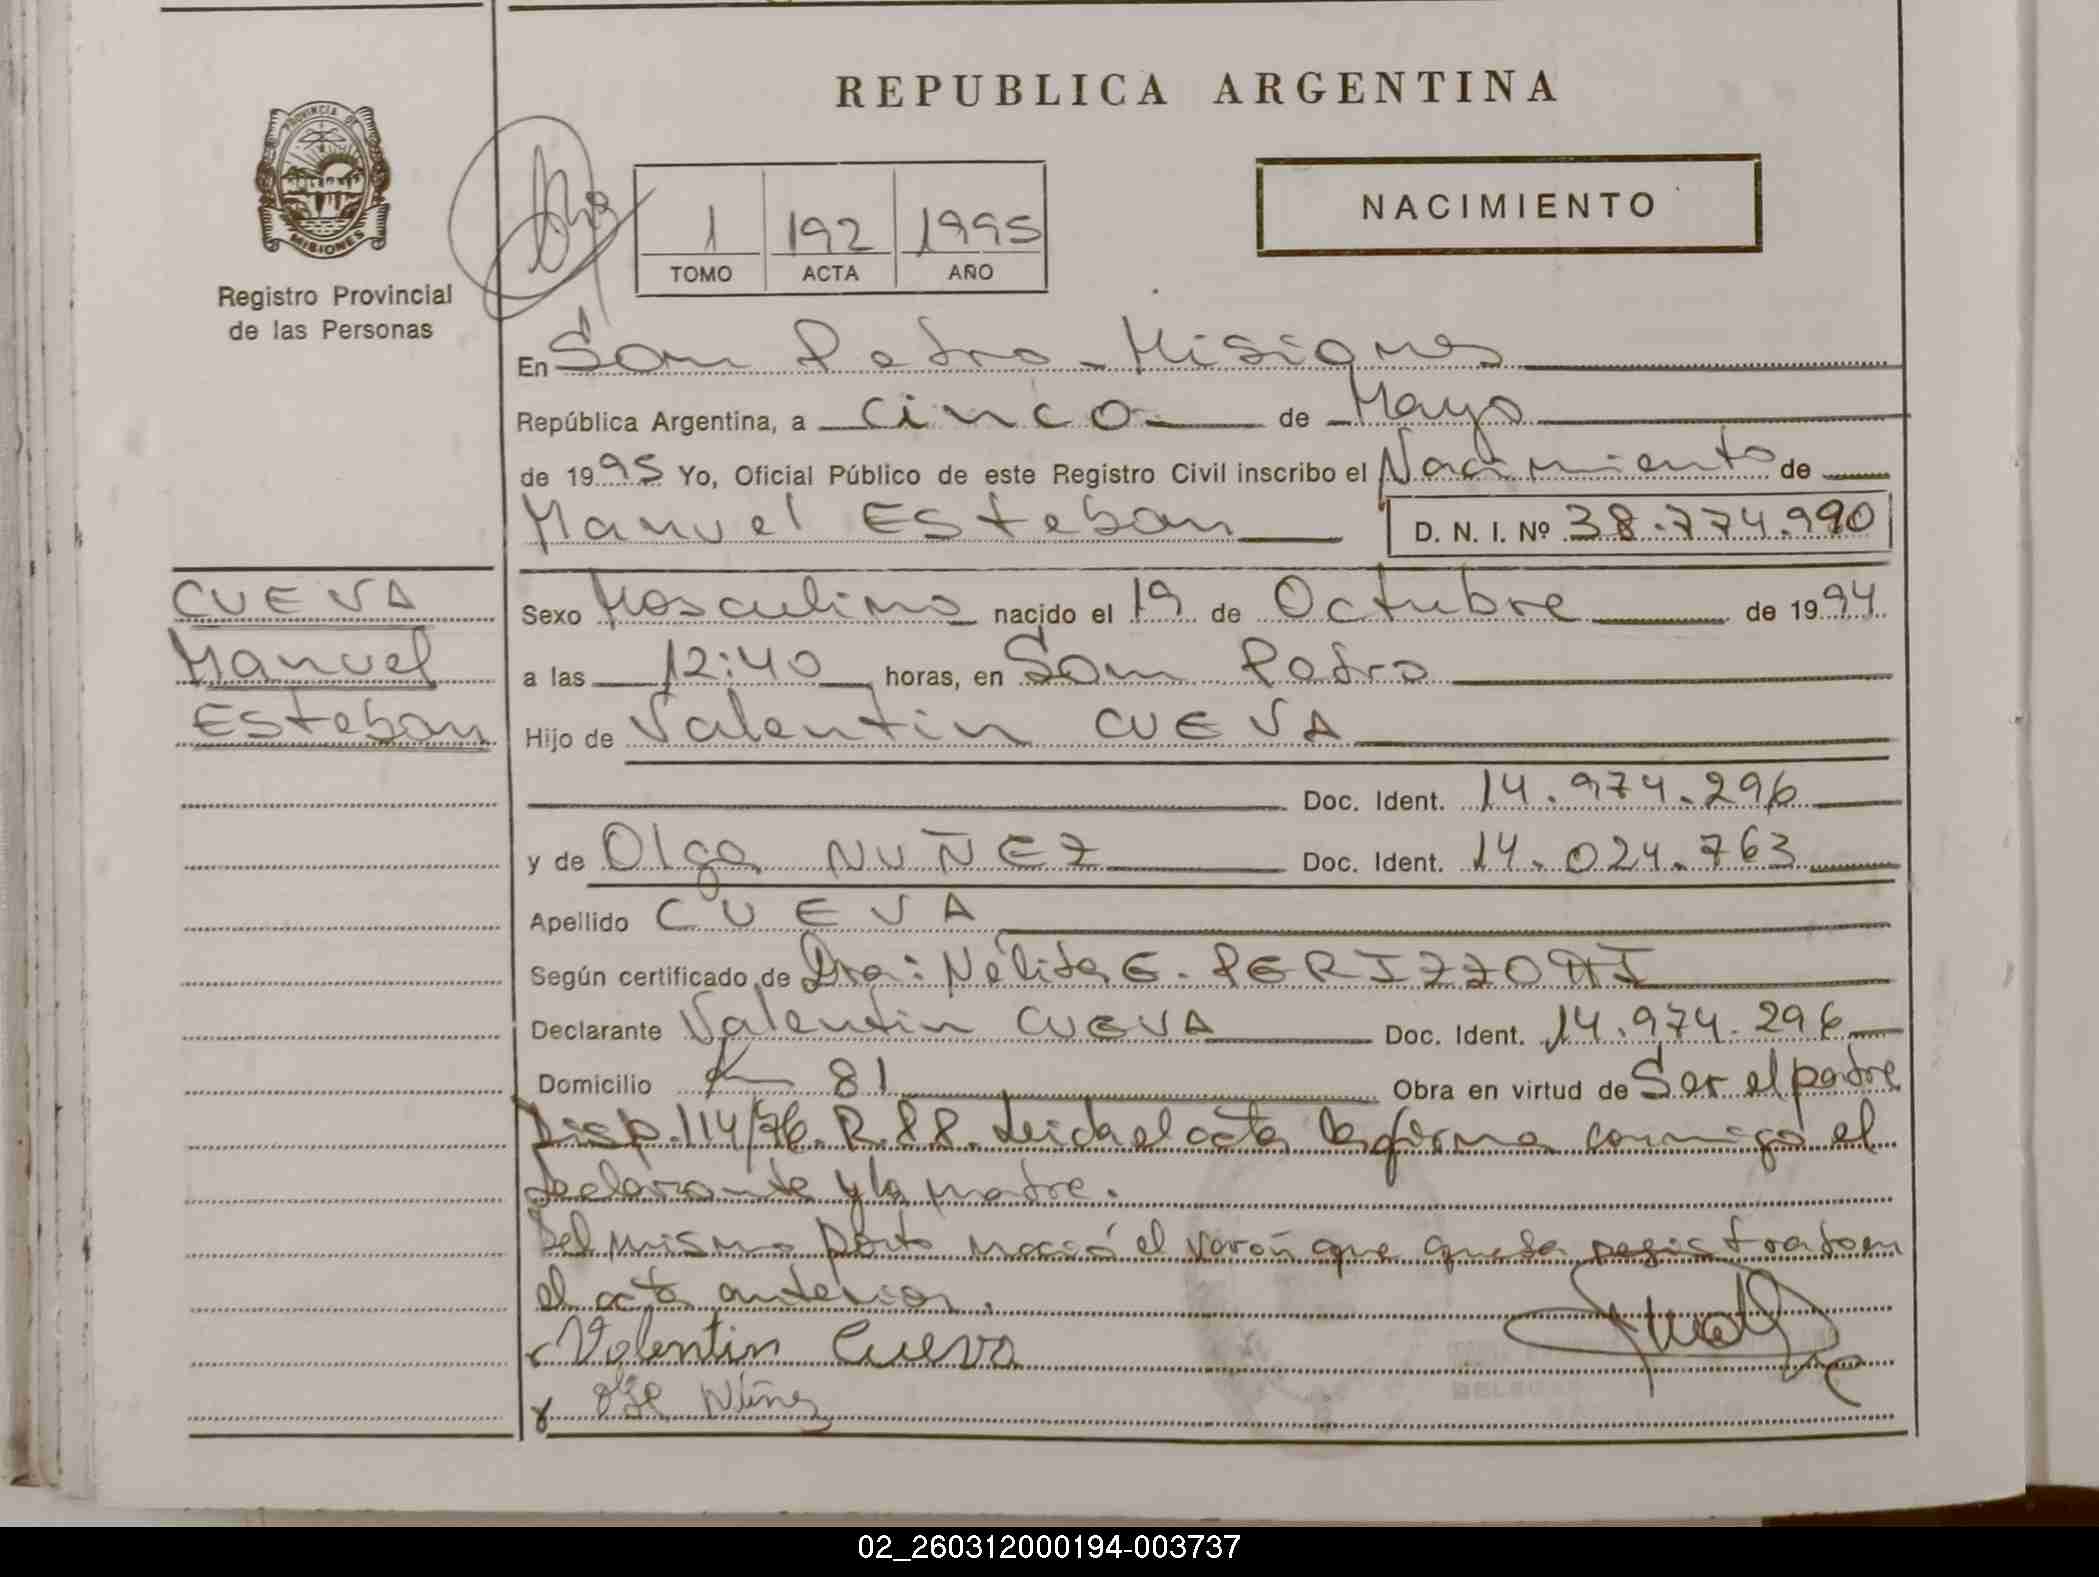 REPUBLICA ARGENTINA
PROVINCIA DE
MISIONES
Registro Provincial
de las Personas
1 192 1995
TOMO ACTA AÑO
NACIMIENTO
En San Pedro - Misiones
República Argentina, a cinco de Mayo
de 1995 Yo, Oficial Público de este Registro Civil inscribo el Nacimiento de
Manuel Esteban D. N. I. Nº 38.774.990
CUEVA
Manuel
Esteban
Sexo Masculino nacido el 19 de Octubre de 1994
a las 12:40 horas, en San Pedro
Hijo de Valentin CUEVA
Doc. Ident. 14.974.296
y de Olga NUÑEZ Doc. Ident. 14.024.763
Apellido CUEVA
Según certificado de Dra: Nélida E.
Declarante Valentin CUEVA Doc. Ident. 14.974.296
Domicilio 81 Obra en virtud de Ser el padre
Disp. 114/76. R. 88. Leida el acta la firma conmigo el
declarante y la madre.
Del mismo parto nació el varón que queda registrado en
el acta anterior.
Valentin Cueva
Nuñez
02_260312000194-003737